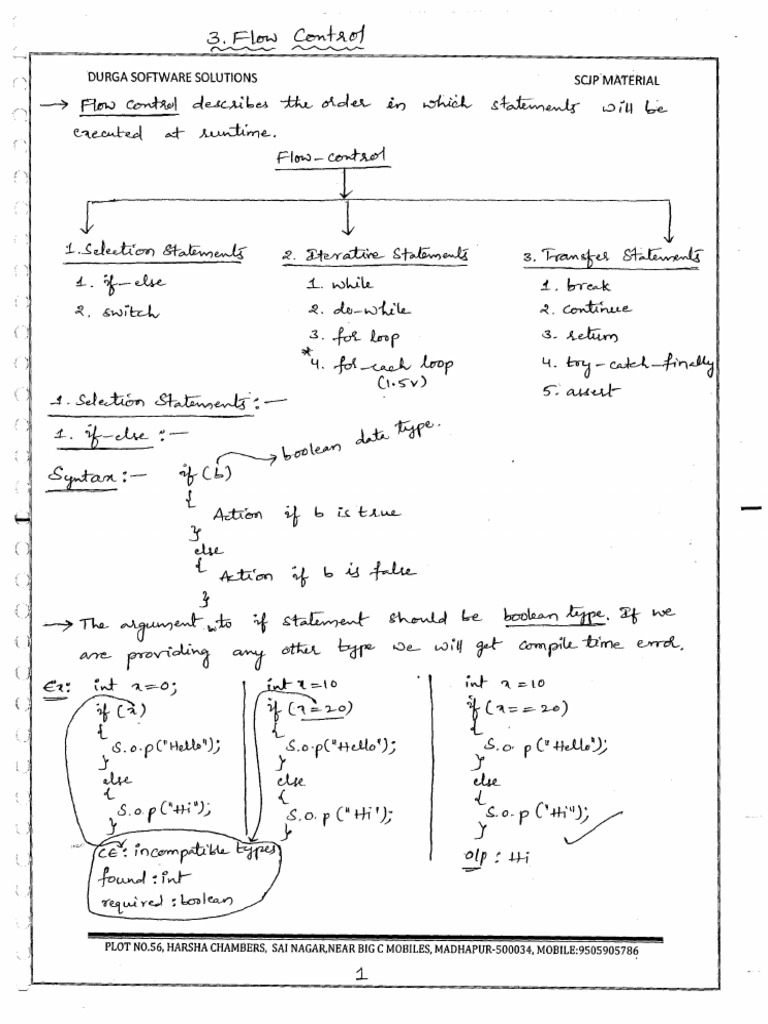 3. Flow Control
DURGA SOFTWARE SOLUTIONS SCJP MATERIAL
→ Flow control describes the order in which statements will be
executed at runtime.
Flow-control
1. Selection Statements
1. if-else
2. switch
2. Iterative Statements
1. while
2. do-while
3. for loop
*4. for-each loop
(1.5v)
3. Transfer Statements
1. break
2. continue
3. return
4. try-catch-finally
5. assert
1. Selection Statements:-
1. if-else:-
Syntax:- if(b) → boolean data type.
{
Action if b is true
}
else
{
Action if b is false
}
→ The argument to if statement should be boolean type. If we
are providing any other type we will get compile time error.
Ex: int x=0;
if(x)
{
S.o.p("Hello");
}
else
{
S.o.p("Hi");
}
int x=10
if(x=20)
{
S.o.p("Hello");
}
else
{
S.o.p("Hi");
}
CE: incompatible types
found: int
required: boolean
int x=10
if(x==20)
{
S.o.p("Hello");
}
else
{
S.o.p("Hi");
}
o/p: Hi
PLOT NO.56, HARSHA CHAMBERS, SAI NAGAR,NEAR BIG C MOBILES, MADHAPUR-500034, MOBILE:9505905786
1